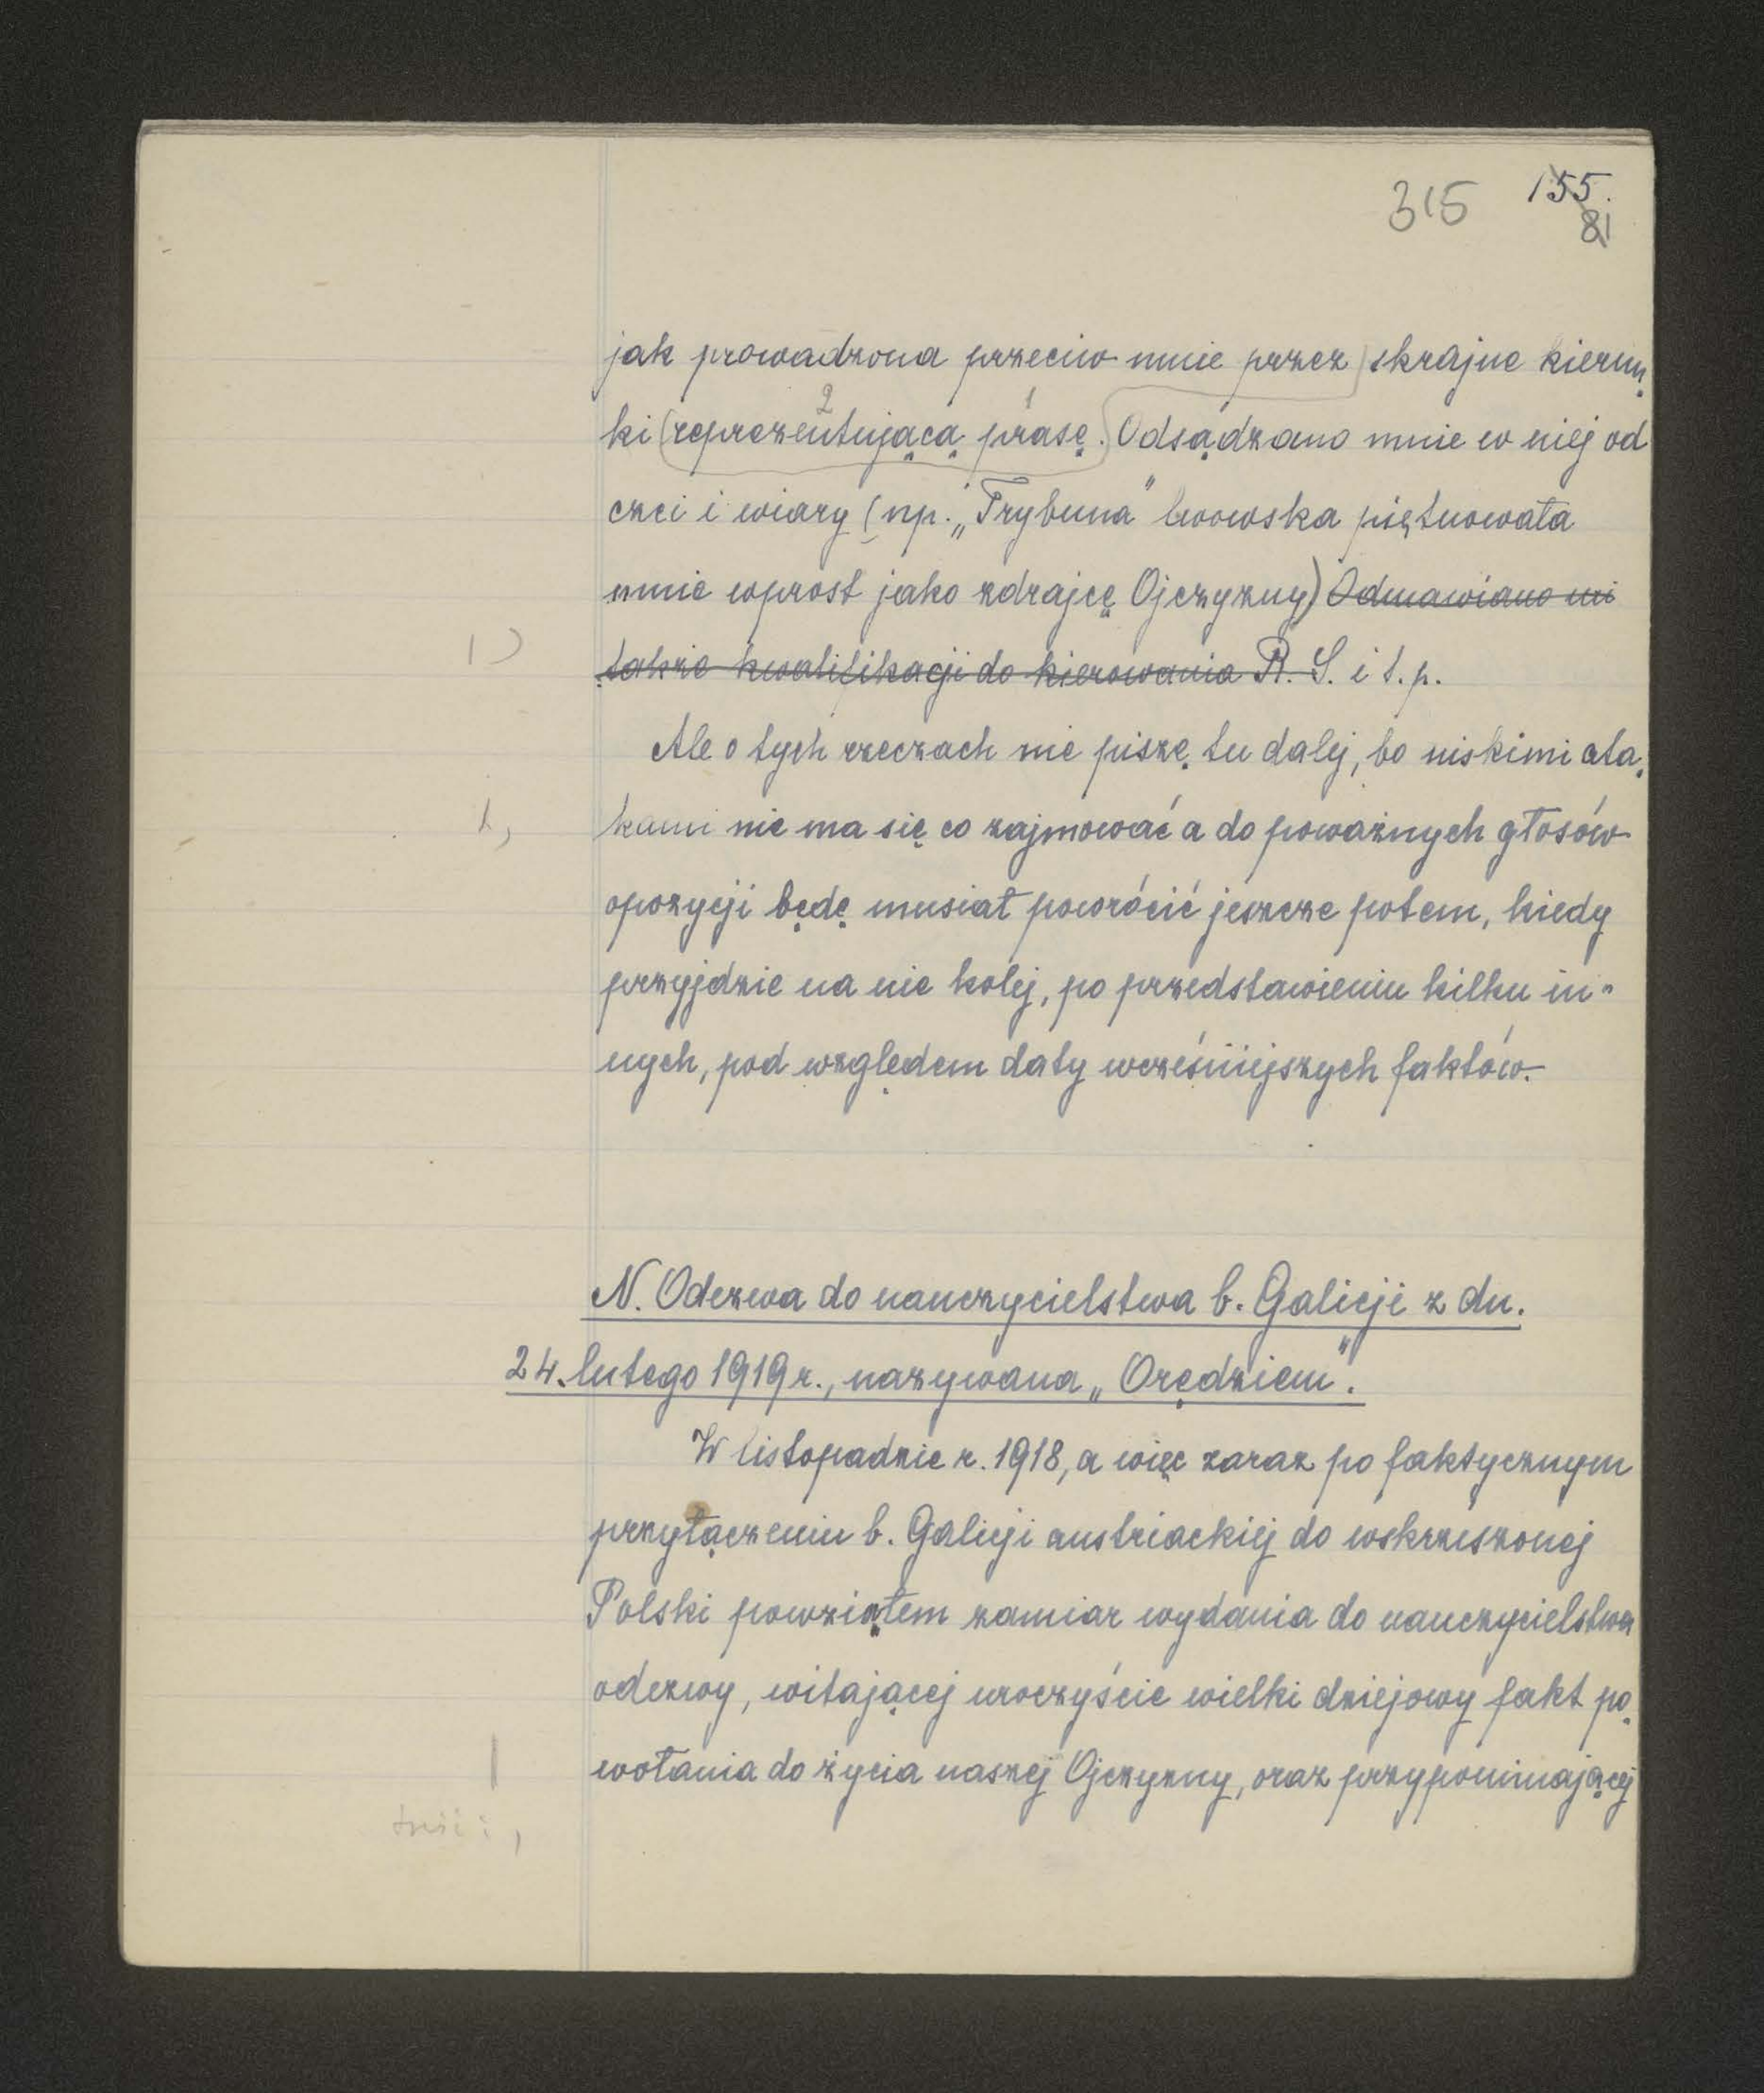 315 155.
81
jak prowadzona przeciw mnie przez skrajne kierun-
ki (reprezentującą prasę. Odsądzano mnie w niej od
2 1
czci i wiary (np. „Trybuna" lwowska piętnowała
mnie wprost jako zdrajcę Ojczyzny) Odmawiano mi
także kwalifikacji do kierowania R. S. i t. p.
Ale o tych rzeczach nie piszę tu dalej, bo niskimi ata-
kami nie ma się co zajmować a do poważnych głosów
opozycji będę musiał powrócić jeszcze potem, kiedy
przyjdzie na nie kolej, po przedstawieniu kilku in-
nych, pod względem daty wcześniejszych faktów.
N. Odezwa do nauczycielstwa b. Galicji z dn.
24. lutego 1919 r., nazywana „Orędziem".
W listopadzie r. 1918, a więc zaraz po faktycznym
przyłączeniu b. Galicji austriackiej do wskrzeszonej
Polski powziąłem zamiar wydania do nauczycielstwa
odezwy, witającej uroczyście wielki dziejowy fakt po-
wołania do życia naszej Ojczyzny, oraz przypominającej